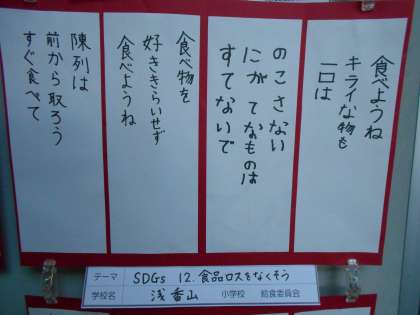 食べようね
キライな物も
一口は
のこさない
にがてなものは
すてないで
食べ物を
好ききらいせず
食べようね
陳列は
前から取ろう
すぐ食べて
テーマ SDGs 12.食品ロスをなくそう
学校名 浅香山 小学校 給食委員会